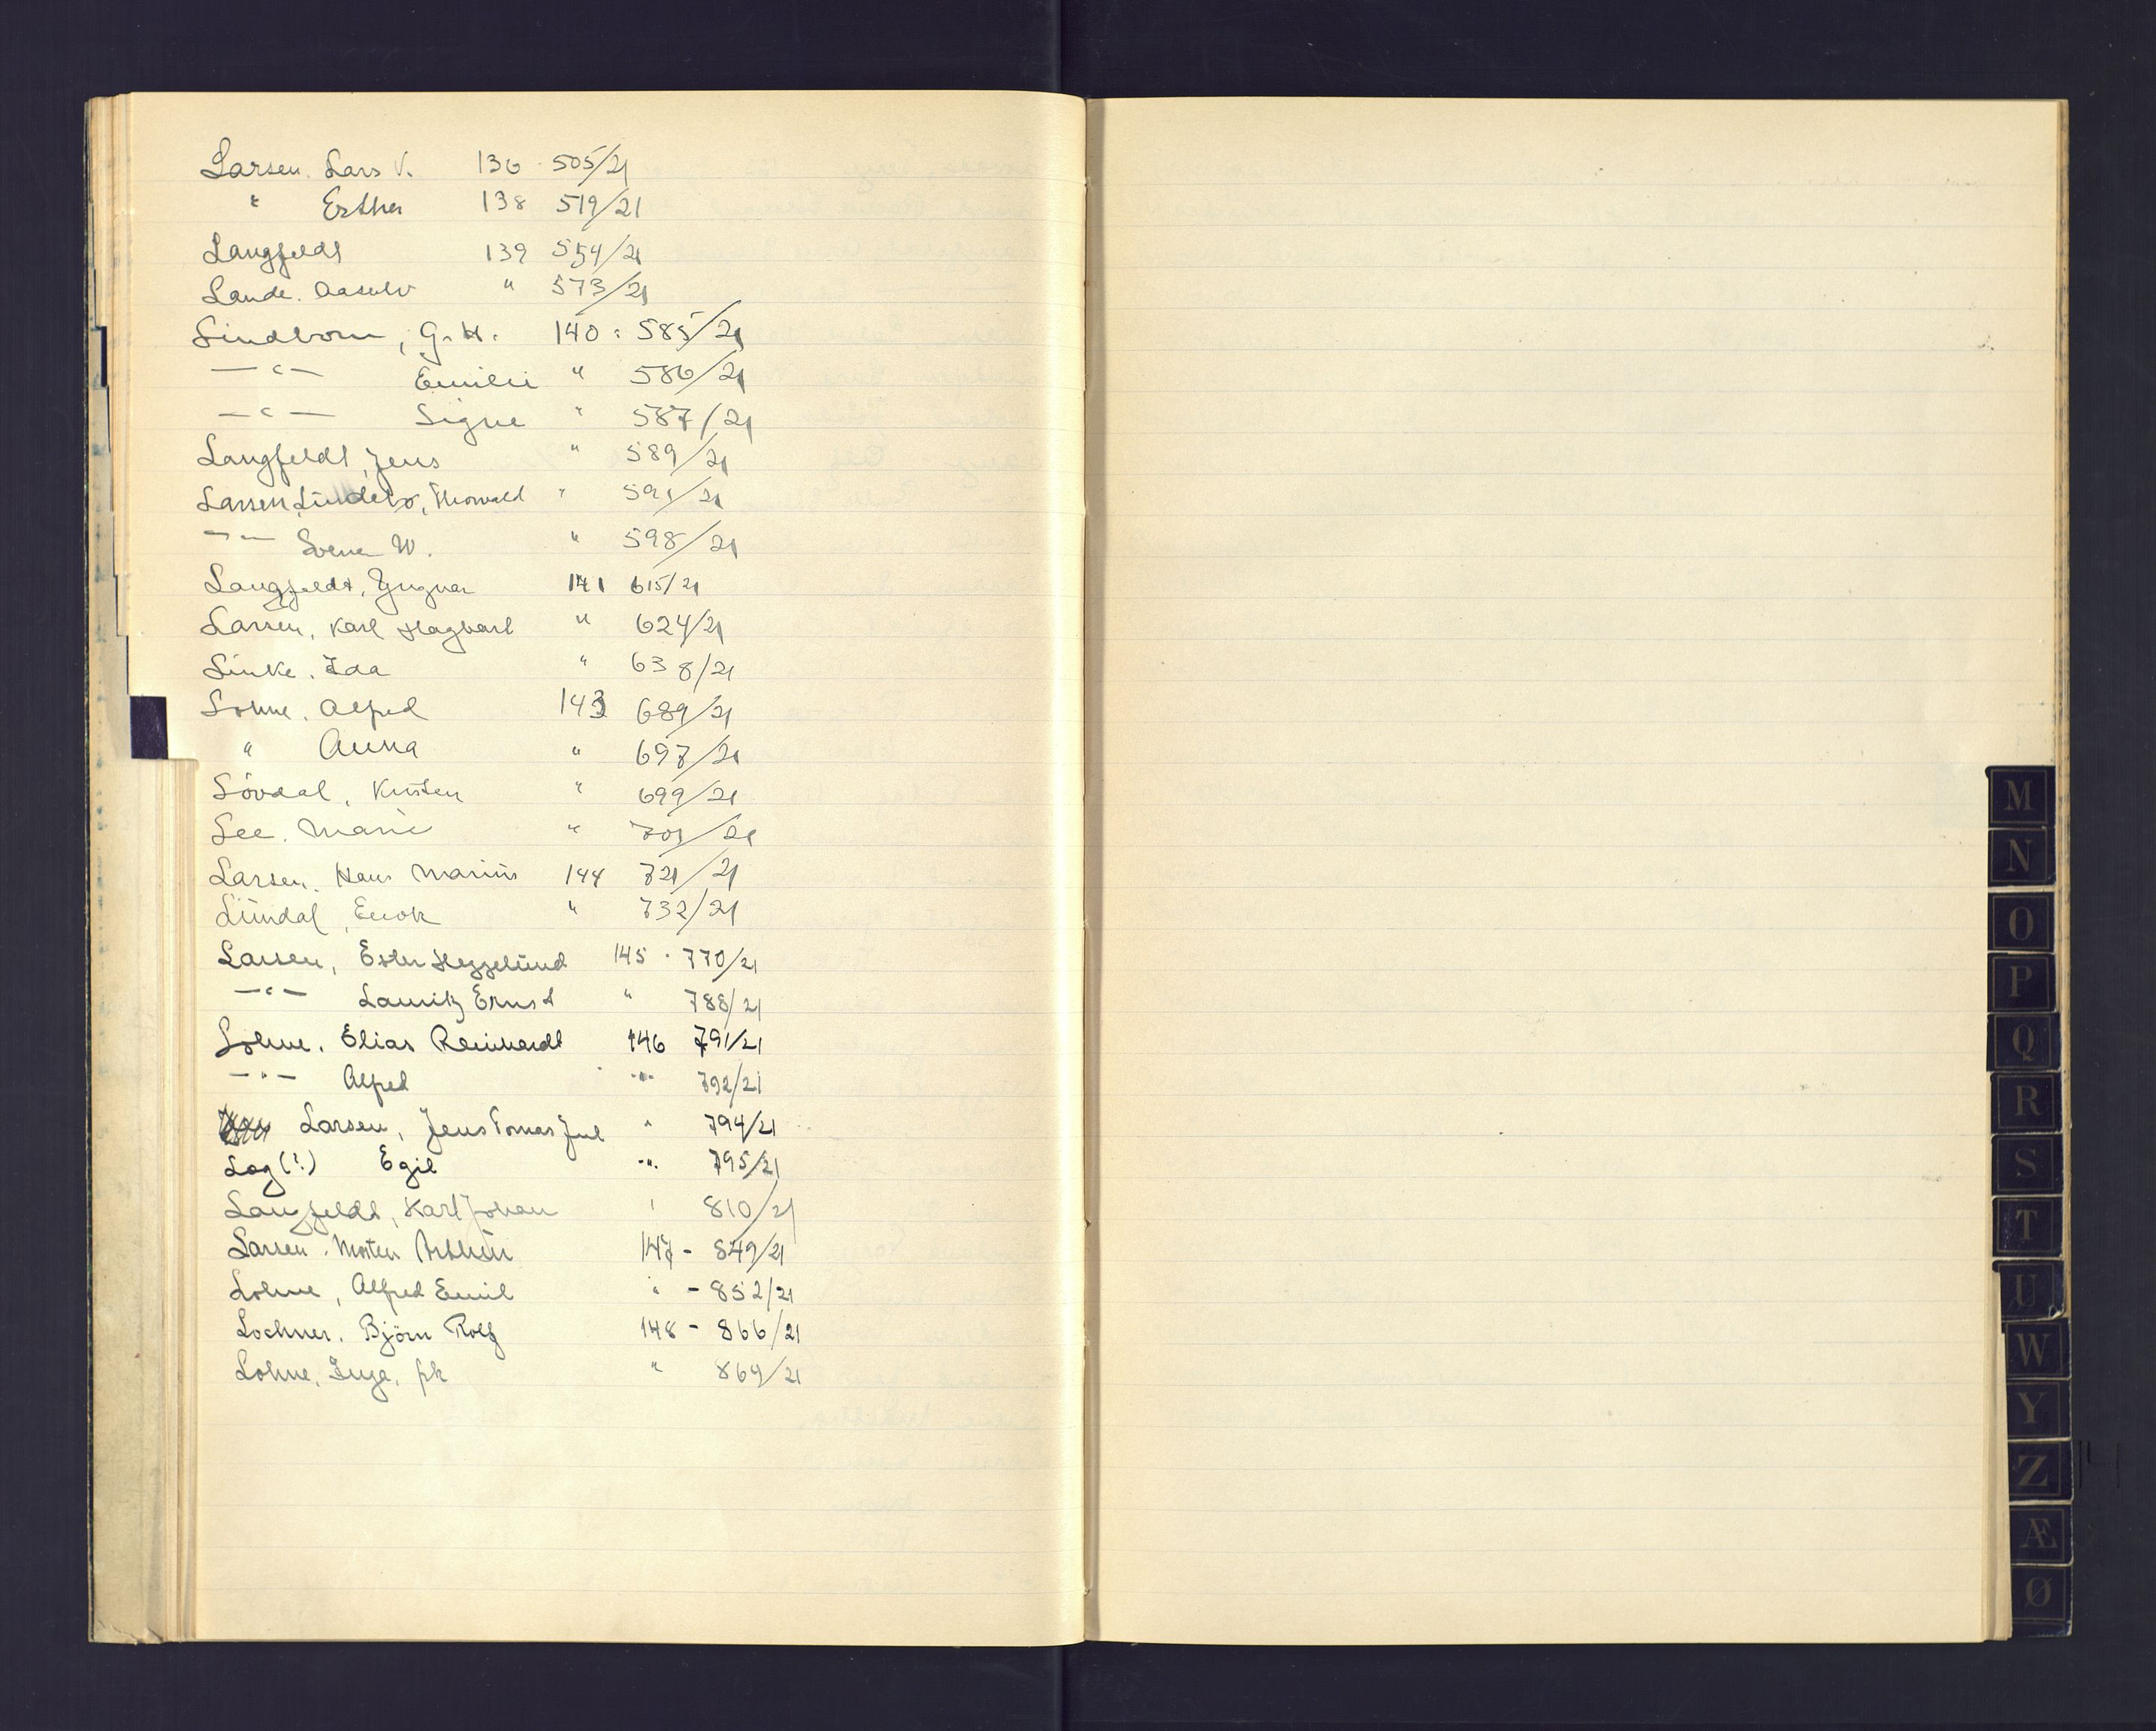 Larsen. Lars V. 136 · 505/21
" Esther 138 519/21
Langfeldt 139 554/21
Lande. Aasulv " 573/21
Lindbom, G. H. 140 : 585/21
—"— Emilie " 586/21
—"— Signe " 587/21
Langfeldt, Jens " 589/21
Larsen Lindebø, Thorvald " 591/21
—"— W. " 598/21
Langfeldt, Yngvar 141 615/21
Larsen, Karl Hagbart " 624/21
Linke. Ida " 638/21
Lohne. Alfred 143 689/21
" Anna " 697/21
Lövdal, Kristen " 699/21
Lee. Marie " 701/21
Larsen. Hans Marius 144 721/21
Lindal, Enok " 732/21
Larsen, Ester Heggelund 145 · 770/21
—"— Lauritz Ernst " 788/21
Lohne. Elias Reinhardt 146 791/21
—"— Alfred " 792/21
Larsen, Jens Tomas Jul " 794/21
Log (?) Egil " 795/21
Langfeldt, Karl Johan " 810/21
Larsen. Morten Arthur 147 - 849/21
Lohne, Alfred Emil " - 852/21
Lochner. Björn Rolf 148 - 866/21
Lohne. Inga. frk " 869/21
M
N
O
P
Q
R
S
T
U
W
Y
Z
Æ
Ø